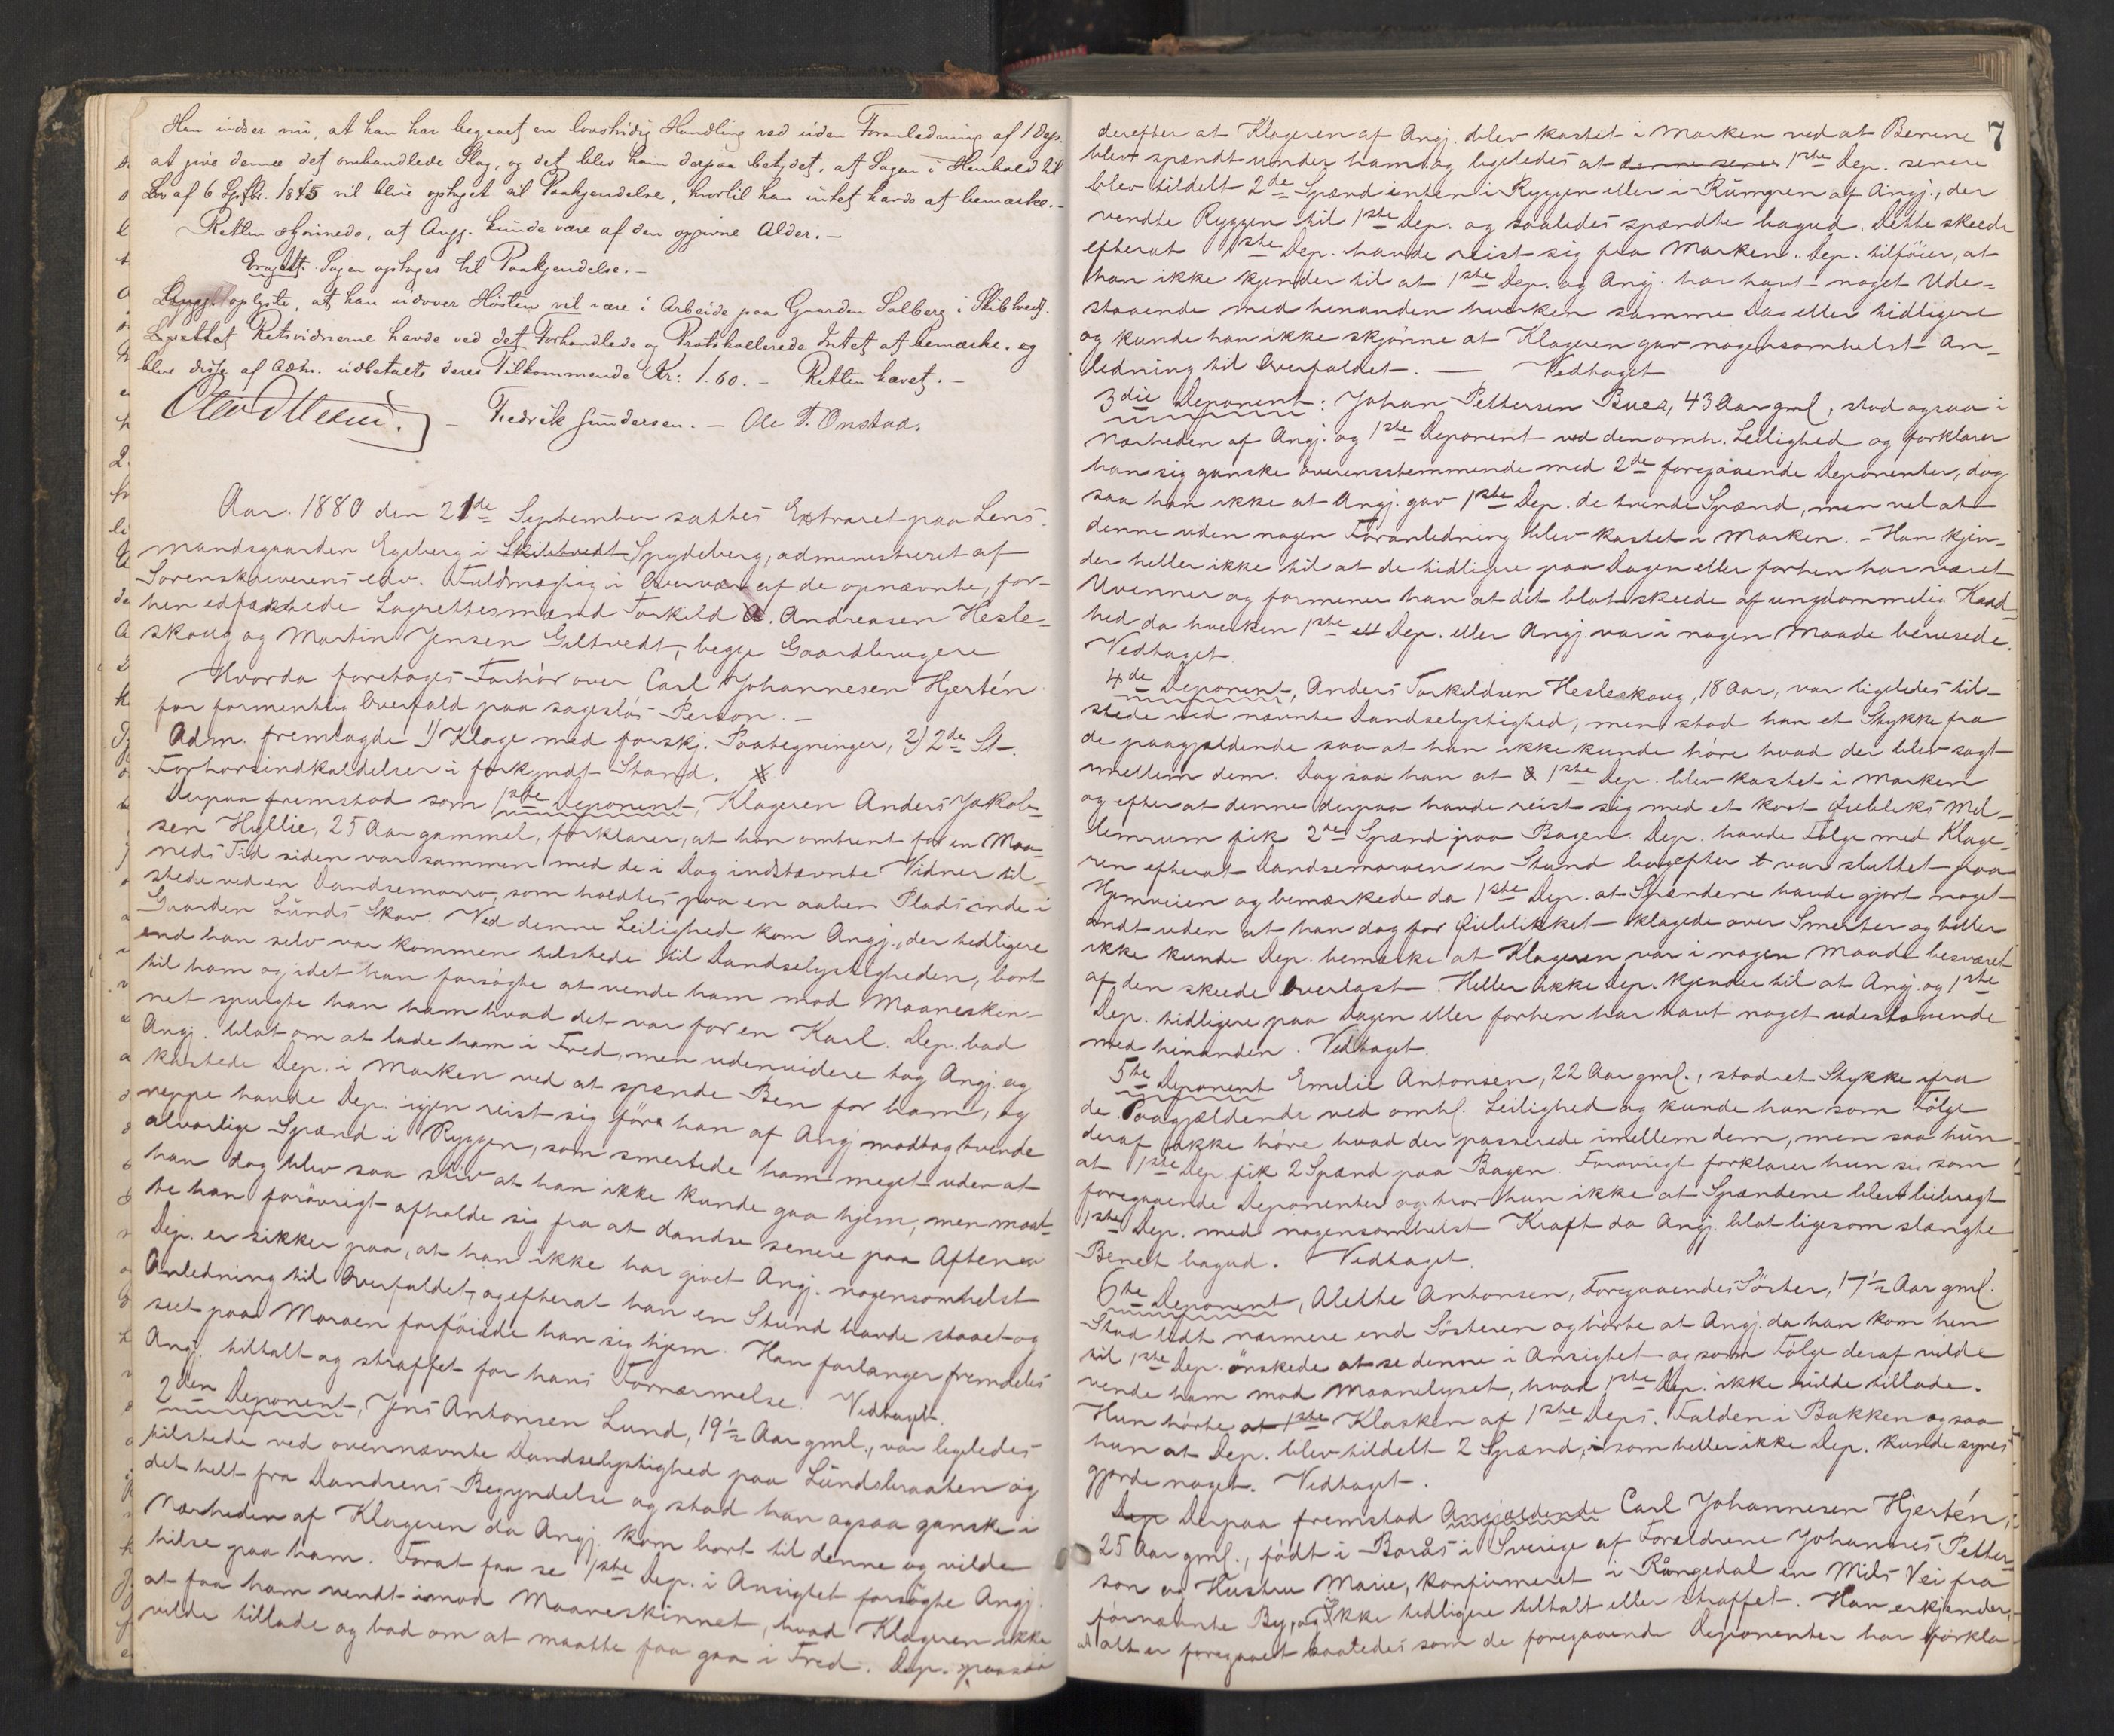 Han indser nu, at han har begaaet en lovstridig Handling ved uden Foranledning af 1 Dep.
at give denne det omhandlede Slag, og det blev ham derpaa betydet, at Sagen i Henhold til
Lov af 6 Septbr. 1845 vil blive optaget til Paakjendelse, hvortil han intet havde at bemærke.-
Retten skjønnede, at Angj. kunde være af den opgivne Alder.-
Eragtet. Sagen optages til Paakjendelse.-
Angj. oplyste, at han udover Høsten vil være i Arbeide paa Gaarden Solberg i Skibtvedt.
Retsvidnerne havde ved det Forhandlede og Protokollerede Intet at bemærke, og
blev disse af Adm. udbetalt deres Tilkommende Kr: 1.60.- Retten hævet.-
Fredrik Gundersen. - Ole T. Onstad.
Aar. 1880 den 21de September sattes Extraret paa Lens-
mandsgaarden Egeberg i Skibtvedt Spydeberg, administreret af
Sorenskriverens edv. Fuldmægtig i Overvær af de opnævnte, for-
hen edfæstede Lagrettesmænd Torkild A. Andreasen Hesle-
skoug og Martin Jensen Giltvedt, begge Gaardbrugere
Hvorda foretages Forhör over Carl Johannesen Hjertén
for formentlig Overfald paa sagesløs Person.-
Adm. fremlagde 1) Klage med forskj. Paategninger, 2) 2de St.
Forhørsindkaldelser i forkyndt Stand.
Derpaa fremstod som 1ste Deponent, Klageren Anders Jakob-
sen Hyllie, 25 Aar gammel, forklarer, at han omtrent for en Maa-
neds Tid siden var sammen med de i Dag indstævnte Vidner til-
stede ved en Dandsemoro, som holdtes paa en aaben Plads inde i
Gaarden Lunds Skov. Ved denne Leilighed kom Angj., der tidligere
end han selv var kommen tilstede til Dandselystigheden, bort
til ham og idet han forsøgte at vende ham mod Maaneskin-
net spurgte han ham hvad det var for en Karl. Dep. bad
Angj. blot om at lade ham i Fred, men udenvidere tog Angj. og
kastede Dep. i Marken ved at spænde Ben for ham, og
neppe havde Dep. igjen reist sig före han af Angj modtog tvende
alvorlige Spænd i Ryggen, som smertede ham meget uden at
han dog blev saa stiv at han ikke kunde gaa hjem, men maat-
te han forövrigt afholde sig fra at dandse senere paa Aftenen
Dep. er sikker paa, at han ikke har givet Angj. nogensomhelst
Anledning til Overfaldet, og efterat han en Stund havde staaet og
seet paa Moroen forföiede han sig hjem. Han forlanger fremdeles
Angj. tiltalt og straffet for hans Fornærmelse. Vedtaget.
2den Deponent, Jens Antonsen Lund, 19½ Aar gml., var ligeledes
tilstede ved ovennævnte Dandselystighed paa Lundsbraaten og
det helt fra Dandsens Begyndelse og stod han ogsaa ganske i
Nærheden af Klageren da Angj. kom bort til denne og vilde
hilse paa ham. Forat faa se 1ste Dep. i Ansigtet forsögte Angj.
at faa ham vendt imod Maaneskinnet, hvad Klageren ikke
vilde tillade og bad om at maatte faa gaa i Fred. Dep. paasaa
7
derefter at Klageren af Angj. blev kastet i Marken ved at Benene
blev spændt under ham og ligeledes at denne senere 1ste Dep. senere
blev tildelt 2de Spænd enten i Ryggen eller i Rumpen af Angj., der
vendte Ryggen til 1ste Dep. og saaledes spændte bagud. Dette skeede
efterat 1ste Dep. havde reist sig fra Marken. Dep. tilföier, at
han ikke kjender til at 1ste Dep. og Angj. har havt noget Ude-
staaende med hinanden hverken samme Dag eller tidligere
og kunde han ikke skjønne at Klageren gav nogensomhelst An-
ledning til Overfaldet. — Vedtaget
3die Deponent: Johan Pettersen Buer, 43 Aar gml, stod ogsaa i
Nærheden af Angj. og 1ste Deponent ved den omh. Leilighed og forklarer
han sig ganske overensstemmende med 2de foregaaende Deponenter, dog
saa han ikke at Angj. gav 1ste Dep. de tvende Spænd, men vel at
denne uden nogen Foranledning blev kastet i Marken. - Han kjen-
der heller ikke til at de tidligere paa Dagen eller forhen har været
Uvenner og formener han at det blot skeede af ungdommelig Kaad-
hed da hverken 1ste Dep. eller Angj var i nogen Maade berusede.
Vedtaget.
4de Deponent, Anders Torkildsen Hesleskoug, 18 Aar, var ligeledes til-
stede ved nævnte Dandselystighed, men stod han et Stykke fra
de paagjældende saa at han ikke kunde höre hvad der blev sagt
mellem dem. Dog saa han at 1ste Dep. blev kastet i Marken
og efterat denne derpaa havde reist sig med et kort Øiebliks Mel-
lemrum fik 2de Spænd paa Bagen. Dep. havde Følge med Klage-
ren efterat Dandsemoroen en Stund bagefter var sluttet paa
Hjemveien og bemærkede da 1ste Dep. at Spændene havde gjort noget
ondt uden at han dog for Øieblikket klagede over Smerter og heller
ikke kunde Dep. bemærke at Klageren var i nogen Maade besværet
af den skeede Overlast. Heller ikke Dep. kjender til at Angj. og 1ste
Dep. tidligere paa Dagen eller forhen har havt noget udestaaende
med hinanden. Vedtaget.
5te Deponent Emilie Antonsen, 22 Aar gml., stod et Stykke ifra
de Paagjældende ved omhl. Leilighed og kunde hun som Følge
deraf ikke höre hvad der passerede imellem dem, men saa hun
at 1ste Dep. fik 2 Spænd paa Bagen. Forøvrigt forklarer hun sig som
foregaaende Deponenter og tror hun ikke at Spændene blev bibragt
1ste Dep. med nogensomhelst Kraft da Angj. blot ligesom slængte
Benet bagud. Vedtaget.
6te Deponent, Alette Antonsen, Foregaaendes Söster, 17½ Aar gml.
Stod lidt nærmere end Sösteren og hörte at Angj. da han kom hen
til 1ste Dep. önskede at se denne i Ansigtet og som Følge deraf vilde
vende ham mod Maanelyset, hvad 1ste Dep. ikke vilde tillade.
Hun hörte at 1ste Klasken af 1ste Deps. Falden i Bakken og saa
hun at Dep. blev tildelt 2 Spænd, som heller ikke Dep. kunde synes
gjorde noget. Vedtaget.
Dep Derpaa fremstod Angjældende Carl Johannesen Hjertén,
25 Aar gml., født i Borås i Sverige af Forældrene Johannes Petter-
son og Hustru Marie, konfirmeret i Rångedal en Mils Vei fra
førnævnte By, og ikke tidligere tiltalt eller straffet. Han erkjender,
at alt er foregaaet saaledes som de foregaaende Deponenter har forkla-